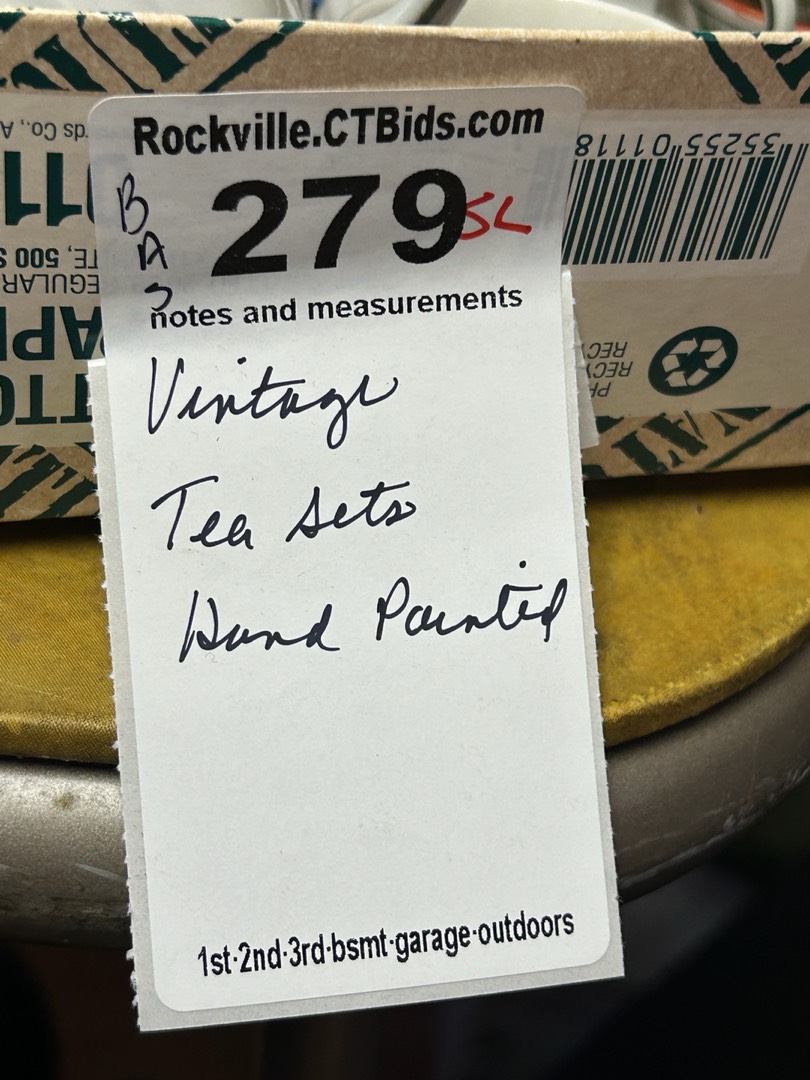 Rockville.CTBids.com
279
SL
B
A
S
notes and measurements
Vintage
Tea Sets
Hand Painted
1st·2nd·3rd·bsmt·garage·outdoors
35255 01118